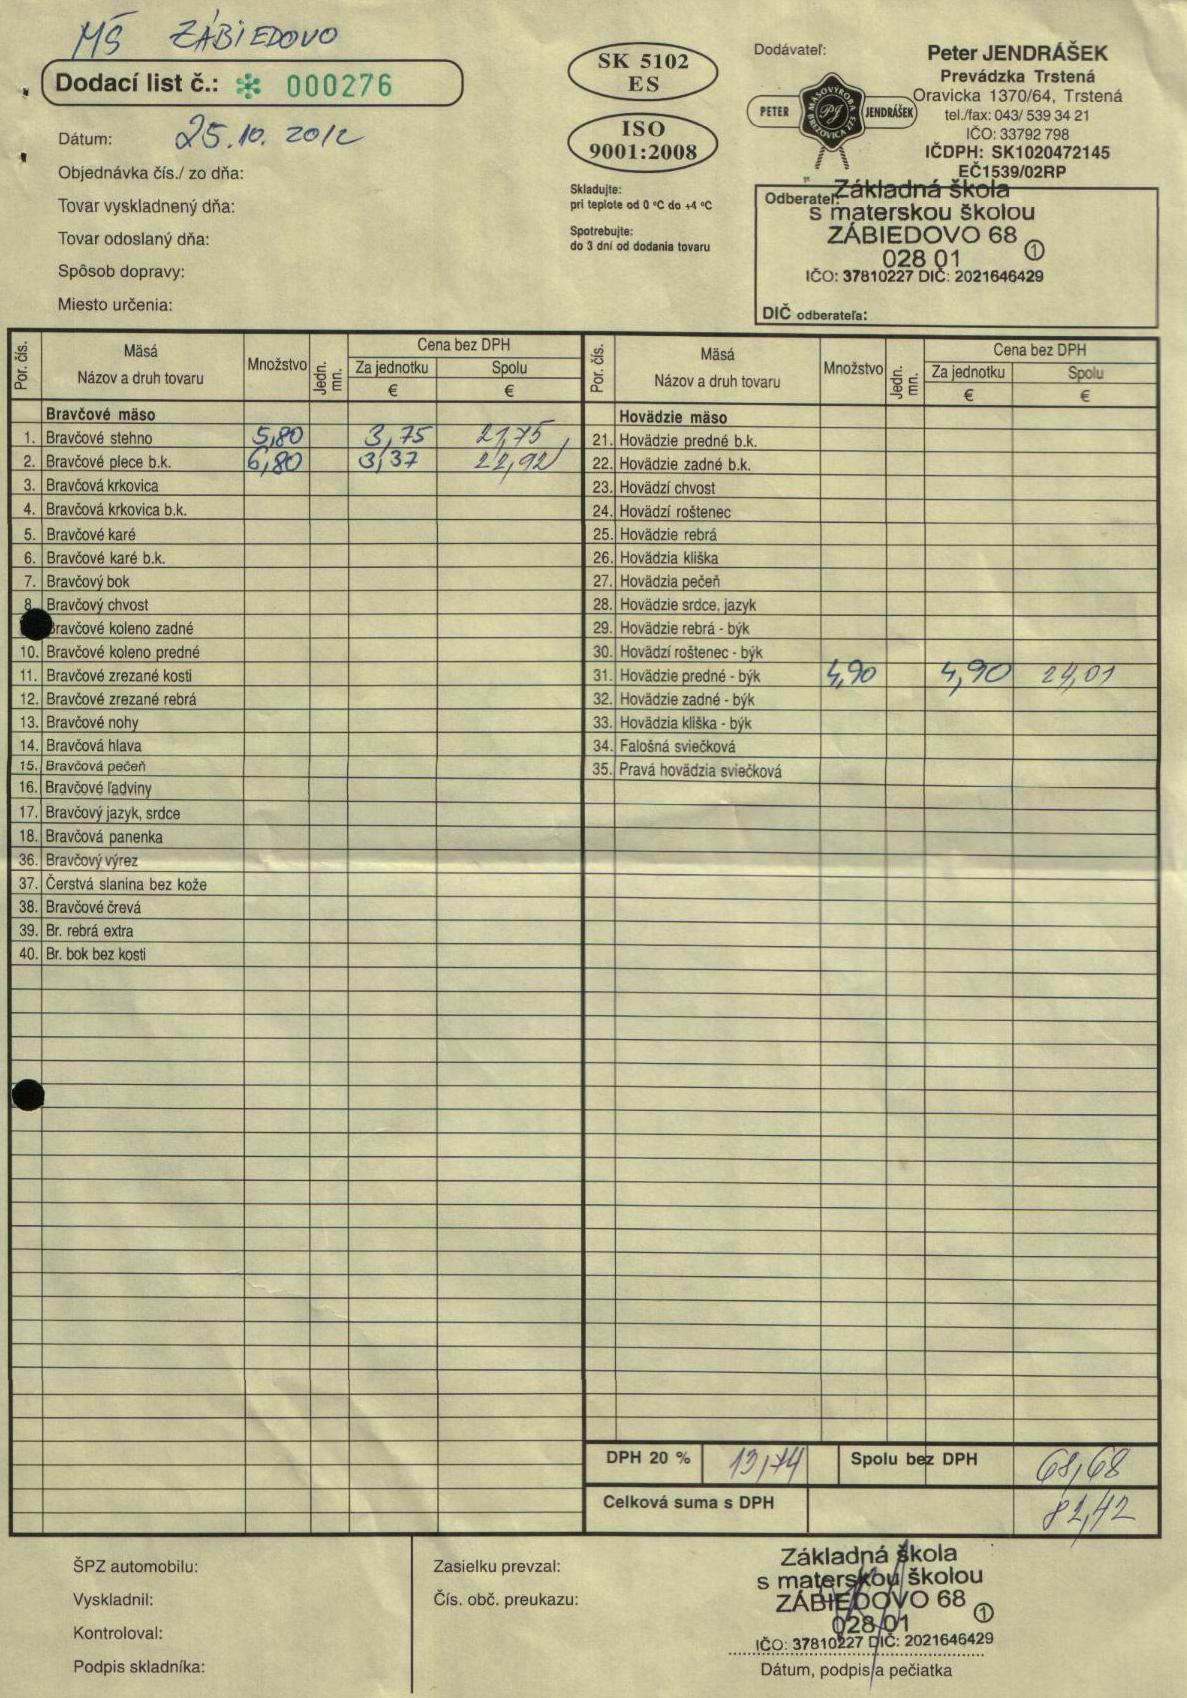 MŠ ZÁBIEDOVO
Dodací list č.: ✻ 000276
Dátum: 25.10.2012
Objednávka čís./ zo dňa:
Tovar vyskladnený dňa:
Tovar odoslaný dňa:
Spôsob dopravy:
Miesto určenia:
SK 5102
ES
ISO
9001:2008
Skladujte:
pri teplote od 0 °C do +4 °C
Spotrebujte:
do 3 dní od dodania tovaru
Dodávateľ:
PETER JENDRÁŠEK
MÄSOVÝROBA
PJ
BREZOVICA 273
Peter JENDRÁŠEK
Prevádzka Trstená
Oravicka 1370/64, Trstená
tel./fax: 043/ 539 34 21
IČO: 33792 798
IČDPH: SK1020472145
EČ1539/02RP
Odberateľ:
Základná škola
s materskou školou
ZÁBIEDOVO 68
028 01 1
IČO: 37810227 DIČ: 2021646429
DIČ odberateľa:
Por. čís. Mäsá Názov a druh tovaru Množstvo Jedn. mn. Cena bez DPH Za jednotku € Spolu €
Bravčové mäso
1. Bravčové stehno 5,80 3,75 21,75
2. Bravčové plece b.k. 6,80 3,37 22,92
3. Bravčová krkovica
4. Bravčová krkovica b.k.
5. Bravčové karé
6. Bravčové karé b.k.
7. Bravčový bok
8. Bravčový chvost
Bravčové koleno zadné
10. Bravčové koleno predné
11. Bravčové zrezané kosti
12. Bravčové zrezané rebrá
13. Bravčové nohy
14. Bravčová hlava
15. Bravčová pečeň
16. Bravčové ľadviny
17. Bravčový jazyk, srdce
18. Bravčová panenka
36. Bravčový výrez
37. Čerstvá slanina bez kože
38. Bravčové črevá
39. Br. rebrá extra
40. Br. bok bez kosti
Por. čís. Mäsá Názov a druh tovaru Množstvo Jedn. mn. Cena bez DPH Za jednotku € Spolu €
Hovädzie mäso
21. Hovädzie predné b.k.
22. Hovädzie zadné b.k.
23. Hovädzí chvost
24. Hovädzí roštenec
25. Hovädzie rebrá
26. Hovädzia kliška
27. Hovädzia pečeň
28. Hovädzie srdce, jazyk
29. Hovädzie rebrá - býk
30. Hovädzí roštenec - býk
31. Hovädzie predné - býk 4,90 4,90 24,01
32. Hovädzie zadné - býk
33. Hovädzia kliška - býk
34. Falošná sviečková
35. Pravá hovädzia sviečková
DPH 20 % 13,74 Spolu bez DPH 68,68
Celková suma s DPH 82,42
ŠPZ automobilu:
Vyskladnil:
Kontroloval:
Podpis skladníka:
Zasielku prevzal:
Čís. obč. preukazu:
Základná škola
s materskou školou
ZÁBIEDOVO 68
028 01 1
IČO: 37810227 DIČ: 2021646429
Dátum, podpis a pečiatka